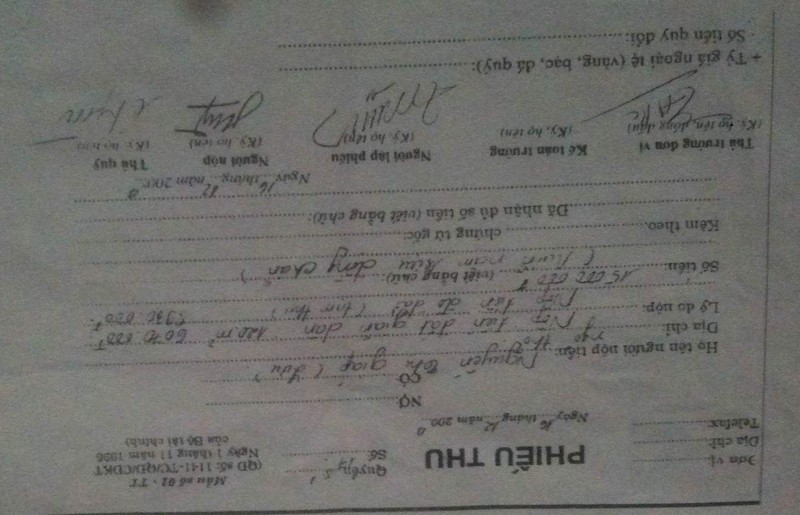 Đơn vị:
Địa chỉ:
Telefax:
PHIẾU THU
Ngày 16 tháng 12 năm 2000
Quyển số
Số:
Mẫu số 01 - TT
(QĐ số: 1141-TC/QĐ/CĐKT
Ngày 1 tháng 11 năm 1996
của Bộ tài chính)
NỢ
CÓ
Họ tên người nộp tiền: Nguyễn
Địa chỉ: Nộp tiền đất giãn dân 120 m² 6070 000đ
Lý do nộp: Nộp tiền 8930 000đ
Số tiền: 15 000 000đ (viết bằng chữ): (mười năm triệu đồng chẵn)
Kèm theo chứng từ gốc:
Đã nhận đủ số tiền (viết bằng chữ):
Ngày 16 tháng 12 năm 2000
Thủ trưởng đơn vị Kế toán trưởng Người lập phiếu Người nộp Thủ quỹ
(Ký, họ tên, đóng dấu) (Ký, họ tên) (Ký, họ tên) (Ký, họ tên) (Ký, họ tên)
+ Tỷ giá ngoại tệ (vàng, bạc, đá quý):
Số tiền quy đổi: